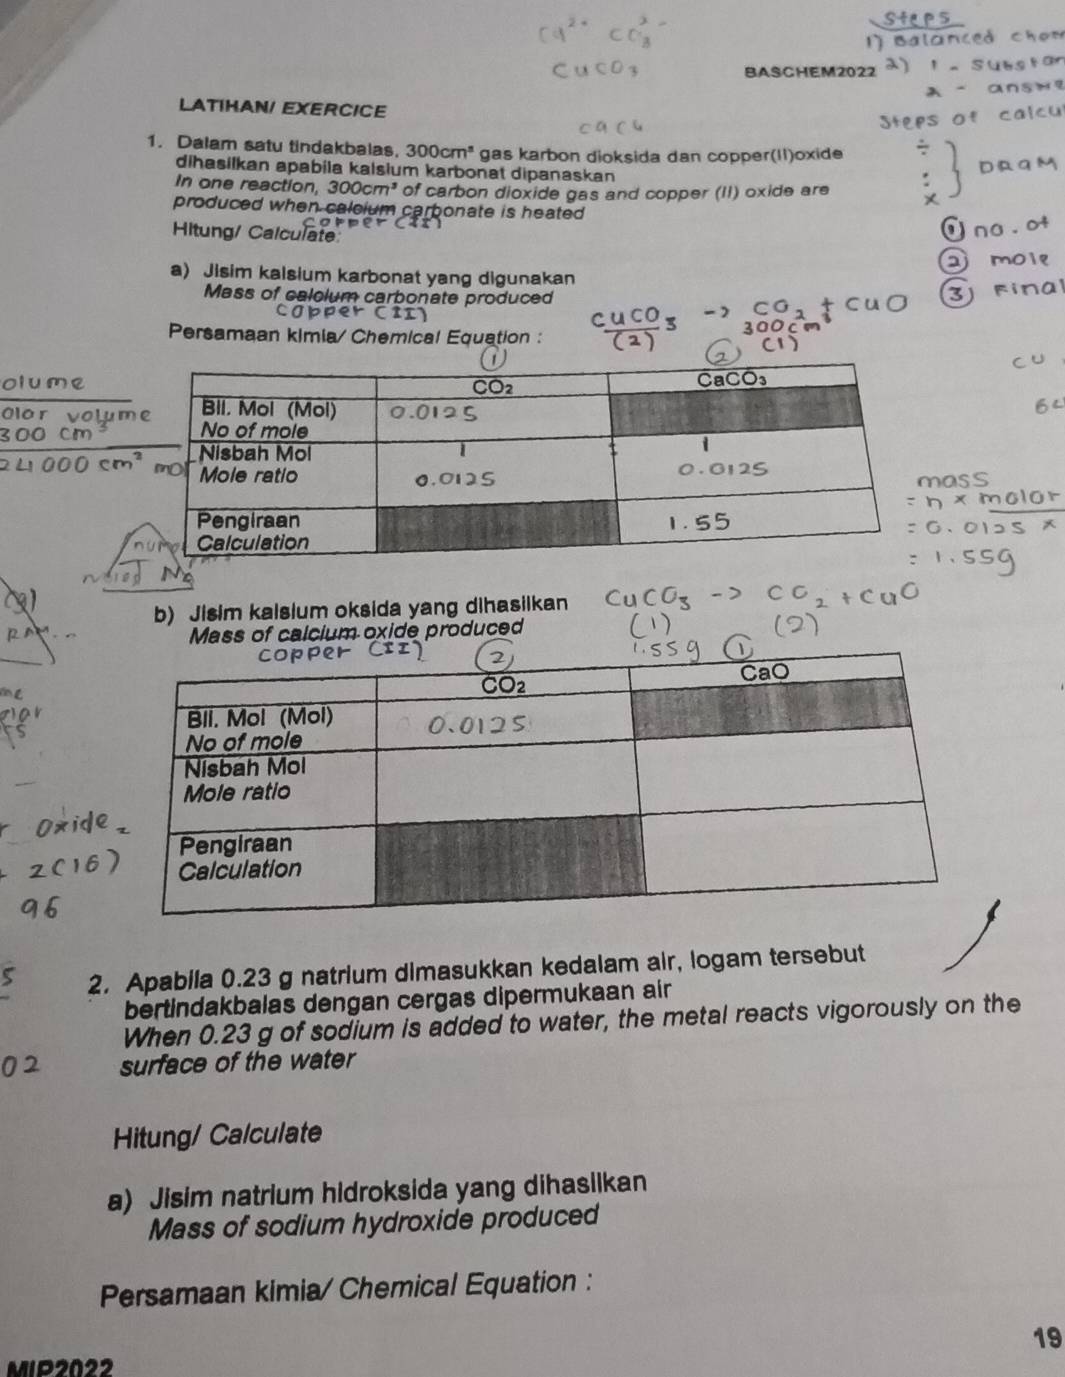 Ca²⁺ CO₃²⁻
CuCO₃
steps
1) Balanced chem
BASCHEM2022
2) 1 - substan
2 - answe
LATIHAN/ EXERCICE
steps of calcu
÷
:
x
} DRQM
1. Dalam satu tindakbalas, 300cm³ gas karbon dioksida dan copper(II)oxide
dihasilkan apabila kalsium karbonat dipanaskan
In one reaction, 300cm³ of carbon dioxide gas and copper (II) oxide are
produced when calcium carbonate is heated
copper (II)
Hitung/ Calculate:
① no. of
② mole
③ Final
a) Jisim kalsium karbonat yang digunakan
Mass of calcium carbonate produced
copper (II)
Persamaan kimia/ Chemical Equation :
CuCO₃ -> CO₂ + CuO
(2) 300cm³
(1)
① ②
CO₂ CaCO₃
Bil. Mol (Mol) 0.0125
No of mole
Nisbah Mol 1 : 1
Mole ratio 0.0125 0.0125
Pengiraan 1.55
Calculation
olume
olar volume
300 cm³
24000 cm³ mol
cu
mass
= n x molar
= 0.0125 x
= 1.55g
b) Jisim kalsium oksida yang dihasilkan
Mass of calcium oxide produced
copper (II)
CuCO₃ -> CO₂ + CuO
(1) (2)
1.55g
② ①
CO₂ CaO
Bil. Mol (Mol) 0.0125
No of mole
Nisbah Mol
Mole ratio
Pengiraan
Calculation
r oxide =
+ 2(16)
96
2. Apabila 0.23 g natrium dimasukkan kedalam air, logam tersebut
bertindakbalas dengan cergas dipermukaan air
When 0.23 g of sodium is added to water, the metal reacts vigorously on the
surface of the water
02
Hitung/ Calculate
a) Jisim natrium hidroksida yang dihasilkan
Mass of sodium hydroxide produced
Persamaan kimia/ Chemical Equation :
19
MIP2022